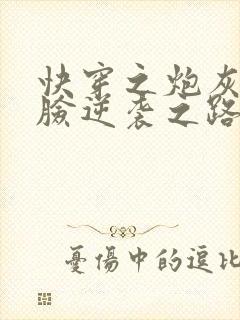 快穿之炮灰
臉逆袭之路
憂傷中的逗比